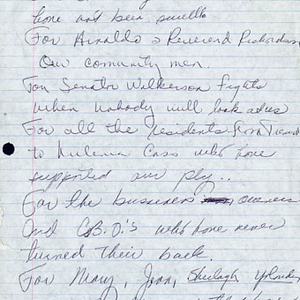 have not been
For Arnaldo & Reverend Richardson
Our community men.
For Senator Wilkerson fights
when nobody will look at us
For all the residents from
to Melenia Cass who have
supported our
For the business owners
And C.B.O.'s who have never
turned their back.
For Mary, Joan, Sheilagh Yolanda